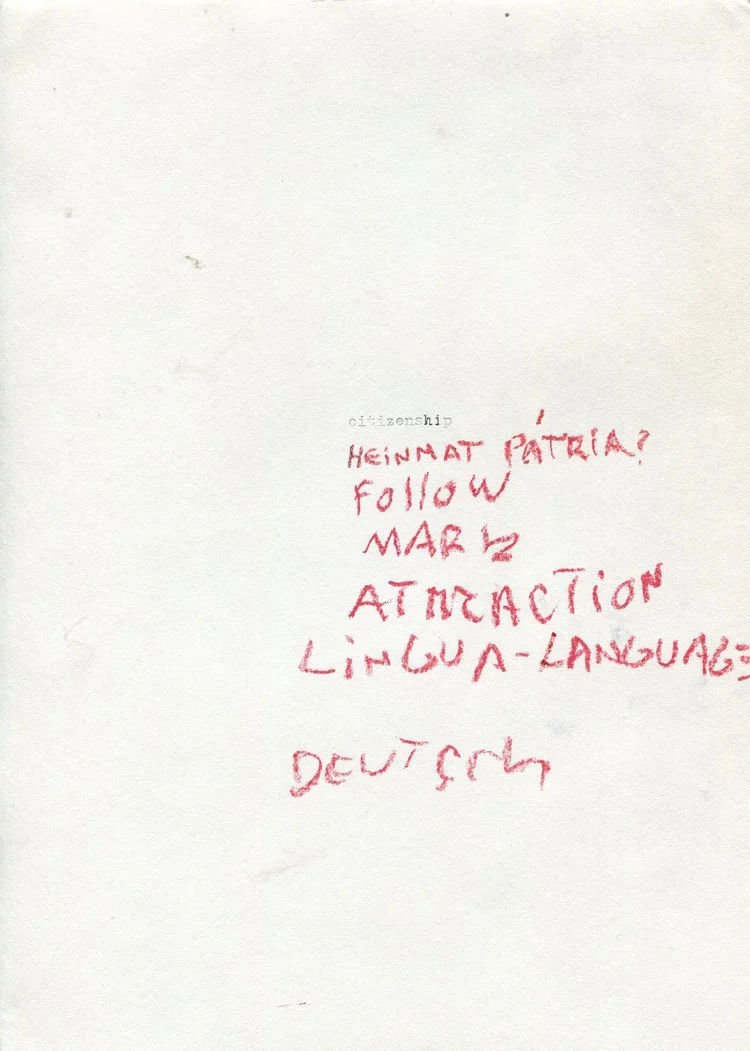 citizenship
HEINMAT PÁTRIA?
Follow
MARK
ATTRACTION
LINGUA-LANGUAGE
DEUTSCH